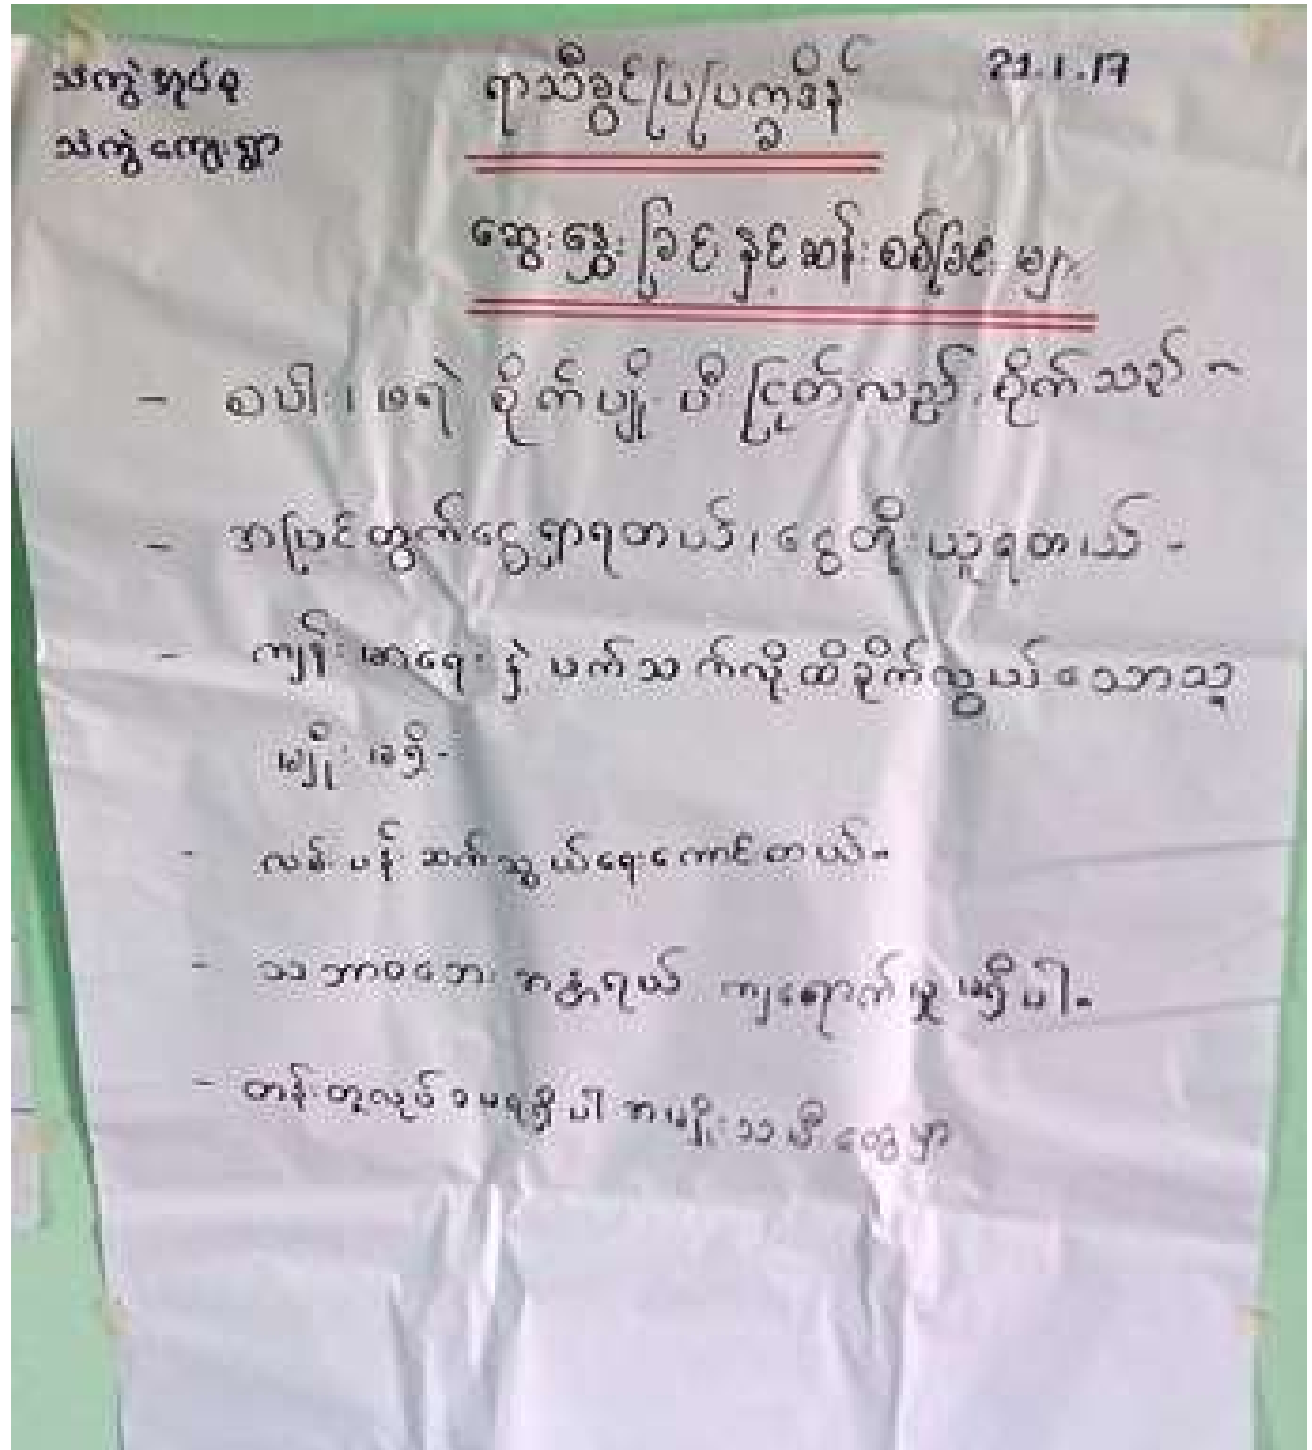 သံကွဲအုပ်စု
သံကွဲကျေးရွာ
ရာသီခွင်ပြပြက္ခဒိန်
21.1.17
ဆွေးနွေးခြင်းနှင့်ဆန်းစစ်ခြင်းများ
- စပါး၊ မရဲ စိုက်ပျိုးပီးငြုတ်လည်းစိုက်သည်-
- အပြင်ထွက်ငွေရှာရတယ်၊ ငွေတိုးယူရတယ်-
- ကျန်းမာရေးနဲ့ပက်သက်လို့ထိခိုက်လွယ်သောသူ
မျိုးမရှိ-
- လမ်းပန်းဆက်သွယ်ရေးကောင်းတယ်-
- သဘာဝဘေးအန္တရယ် ကျရောက်မှုမရှိပါ-
- တန်းတူလုပ်ခမရရှိပါ အမျိုးသမီးတွေမှာ